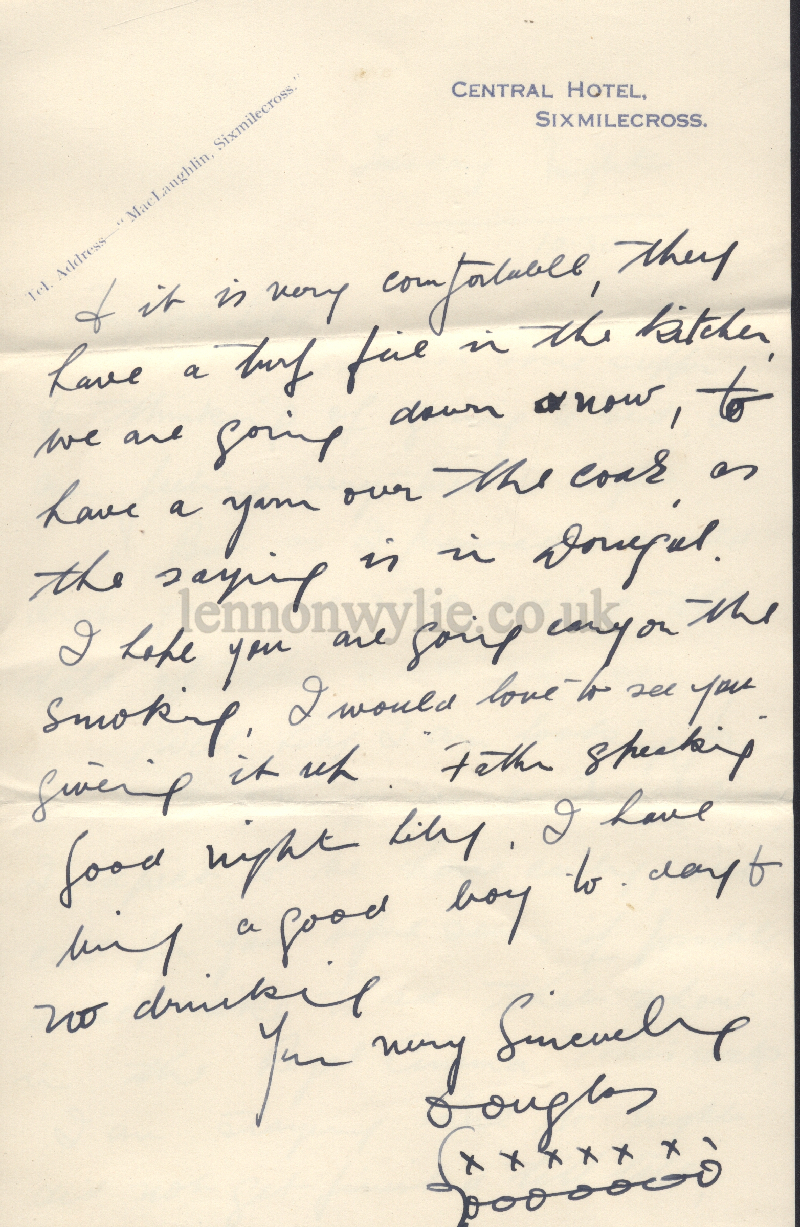 CENTRAL HOTEL,
SIXMILECROSS.
Tel. Address—"MacLaughlin, Sixmilecross."
& it is very comfortable, they
have a turf fire in the kitchen,
we are going down now, to
have a yarn over the coals, as
the saying is in Donegal.
lennonwylie.co.uk
I hope you are going easy on the
smoking, I would love to see you
giving it up. "Father speaking"
Good night Lily. I have
being a good boy to-day &
no drinking
Your very Sincerely
Douglas
x x x x x x
o o o o o o o